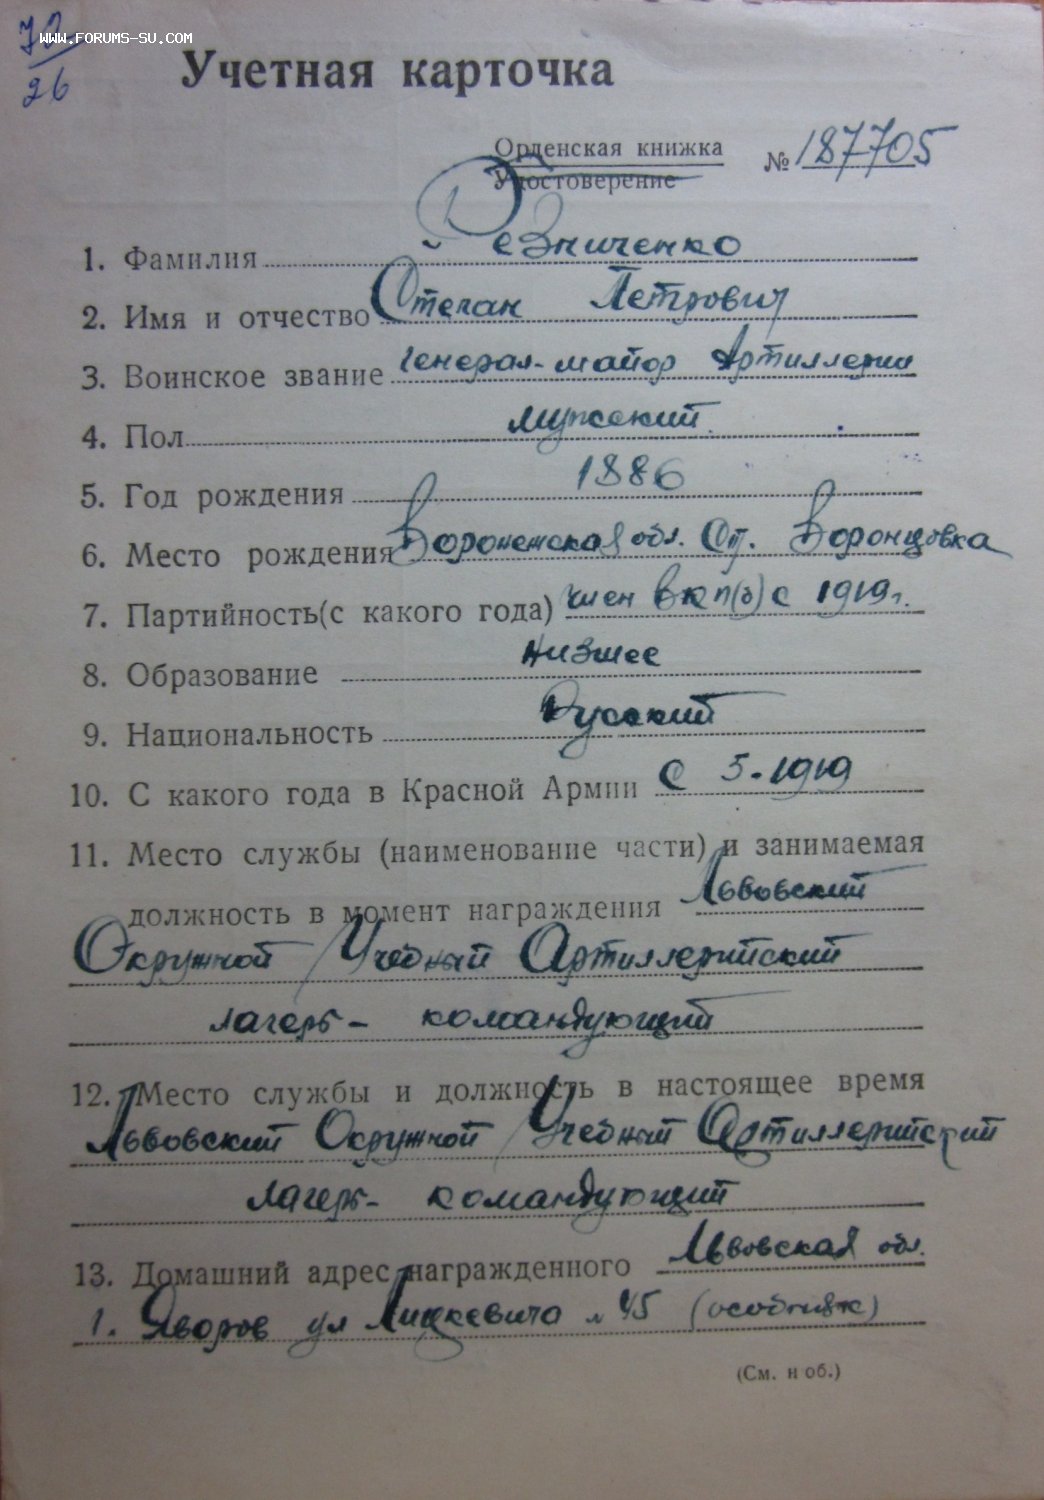 WWW.FORUMS-SU.COM
26
Учетная карточка
Орденская книжка
Удостоверение
№ 187705
1. Фамилия Резниченко
2. Имя и отчество Степан Петрович
3. Воинское звание Генерал-майор Артиллерии
4. Пол мужский
5. Год рождения 1886
6. Место рождения Воронежская обл. Ст. Воронцовка
7. Партийность (с какого года) член ВКП(б) с 1919 г.
8. Образование низшее
9. Национальность Русский
10. С какого года в Красной Армии С 5-1919
11. Место службы (наименование части) и занимаемая
должность в момент награждения Львовский
Окружной Учебный Артиллерийский
лагерь - командующий
12. Место службы и должность в настоящее время
Львовский Окружной Учебный Артиллерийский
лагерь - командующий
13. Домашний адрес награжденного Львовская обл.
г. Яворов ул Мицкевича № 45 (особняк)
(См. н об.)